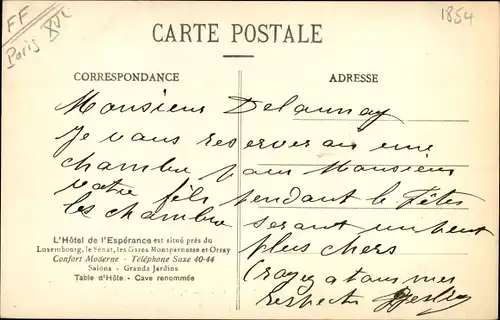 FF
Paris XVe
1854
CARTE POSTALE
CORRESPONDANCE
ADRESSE
Monsieur Delaunay
Je vous reserverai une
chambre pour Monsieur
votre fils pendant le Fêtes
les chambre serant un peut
plus chers
Croyez a tous mes
respects
L'Hôtel de l'Espérance est situé près du
Luxembourg, le Sénat, les Gares Montparnasse et Orsay
Confort Moderne - Téléphone Saxe 40-44
Salons - Grands Jardins
Table d'Hôte - Cave renommée